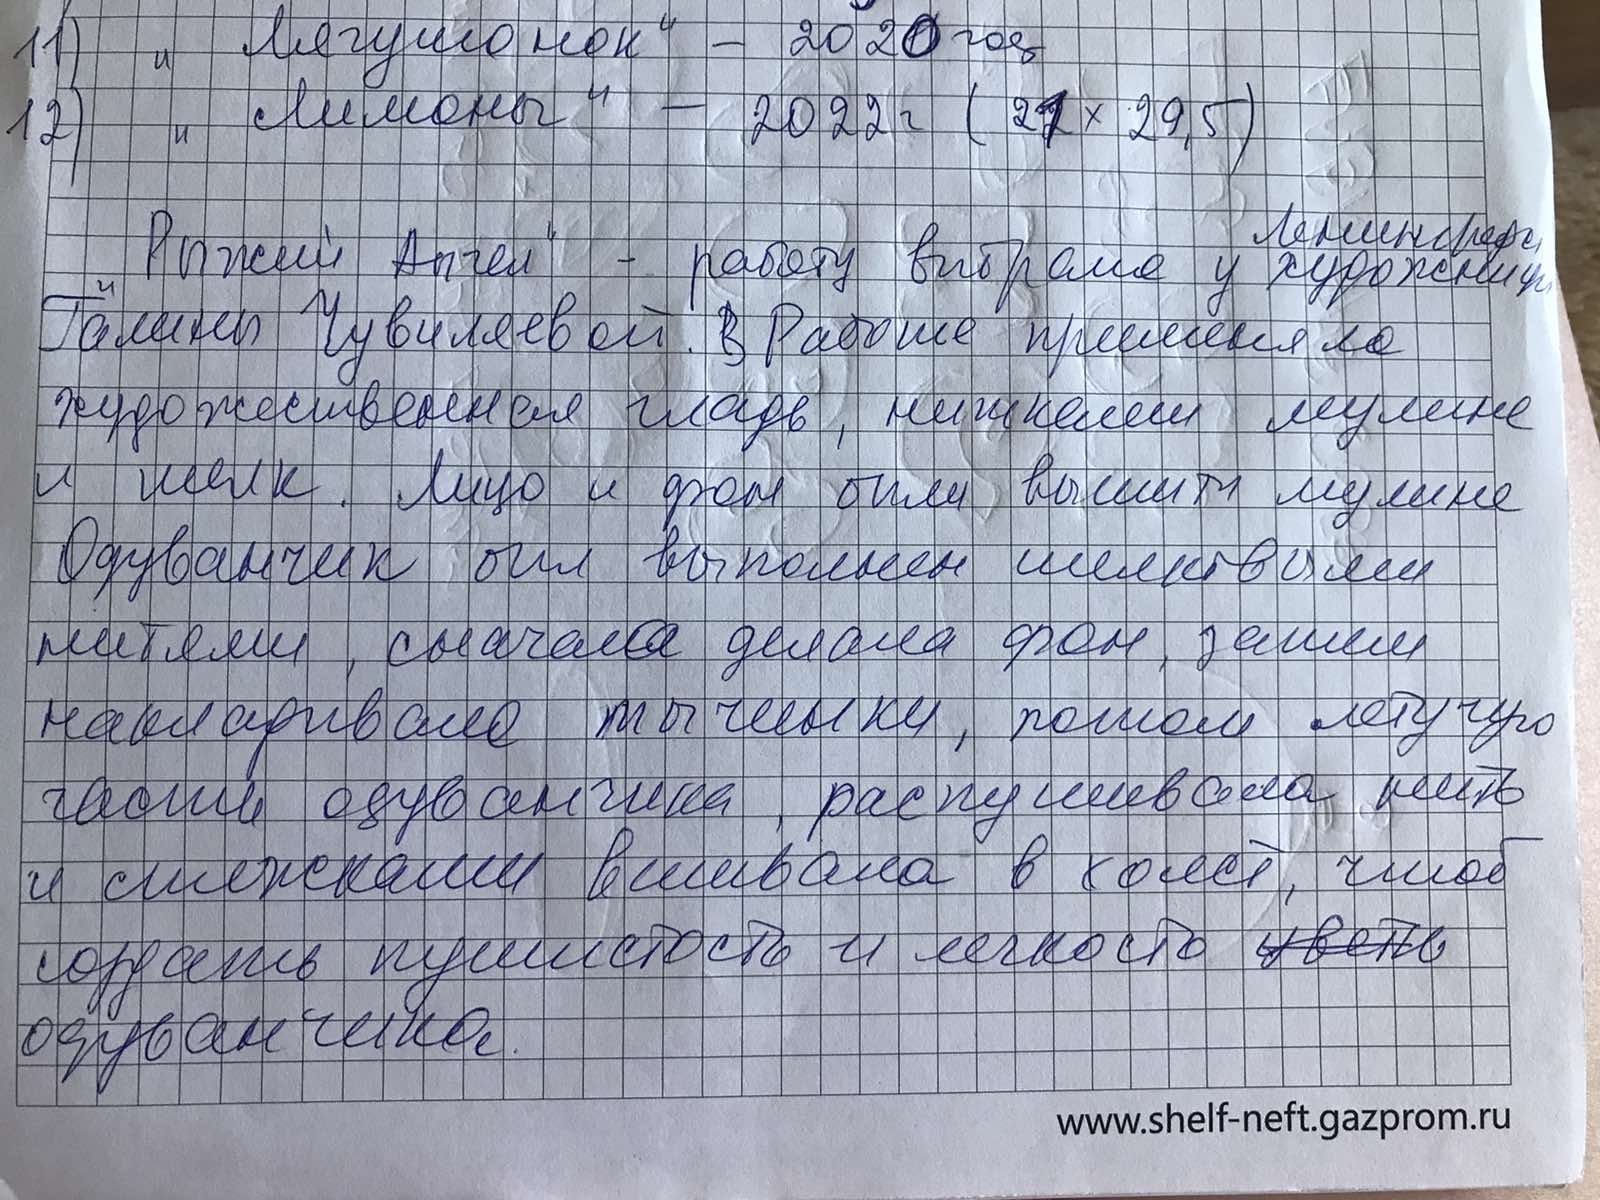 11) „Лягушонок“ – 2020 год
12) „Лимоны“ – 2022г (21 x 29,5)
Ленинград
„Рыжий Ангел“ - работу выбрала у художницы
Галины Чувиляевой. В Работе применяла
художественная гладь, нитками мулине
и шелк. Лицо и фон были вышиты мулине
Одуванчик был выполнен шелковыми
нитями, сначала делала фон, затем
накладывала тычинки, потом летучую
часть одуванчика, распушивала нить
и стежками вшивала в холст, чтоб
создать пушистость и легкость цветь
одуванчика.
www.shelf-neft.gazprom.ru